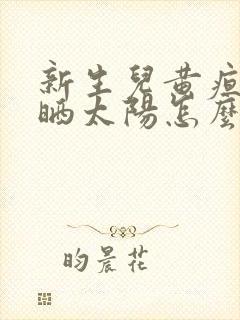 新生兒黃疸
晒太陽怎麼
昀晨花